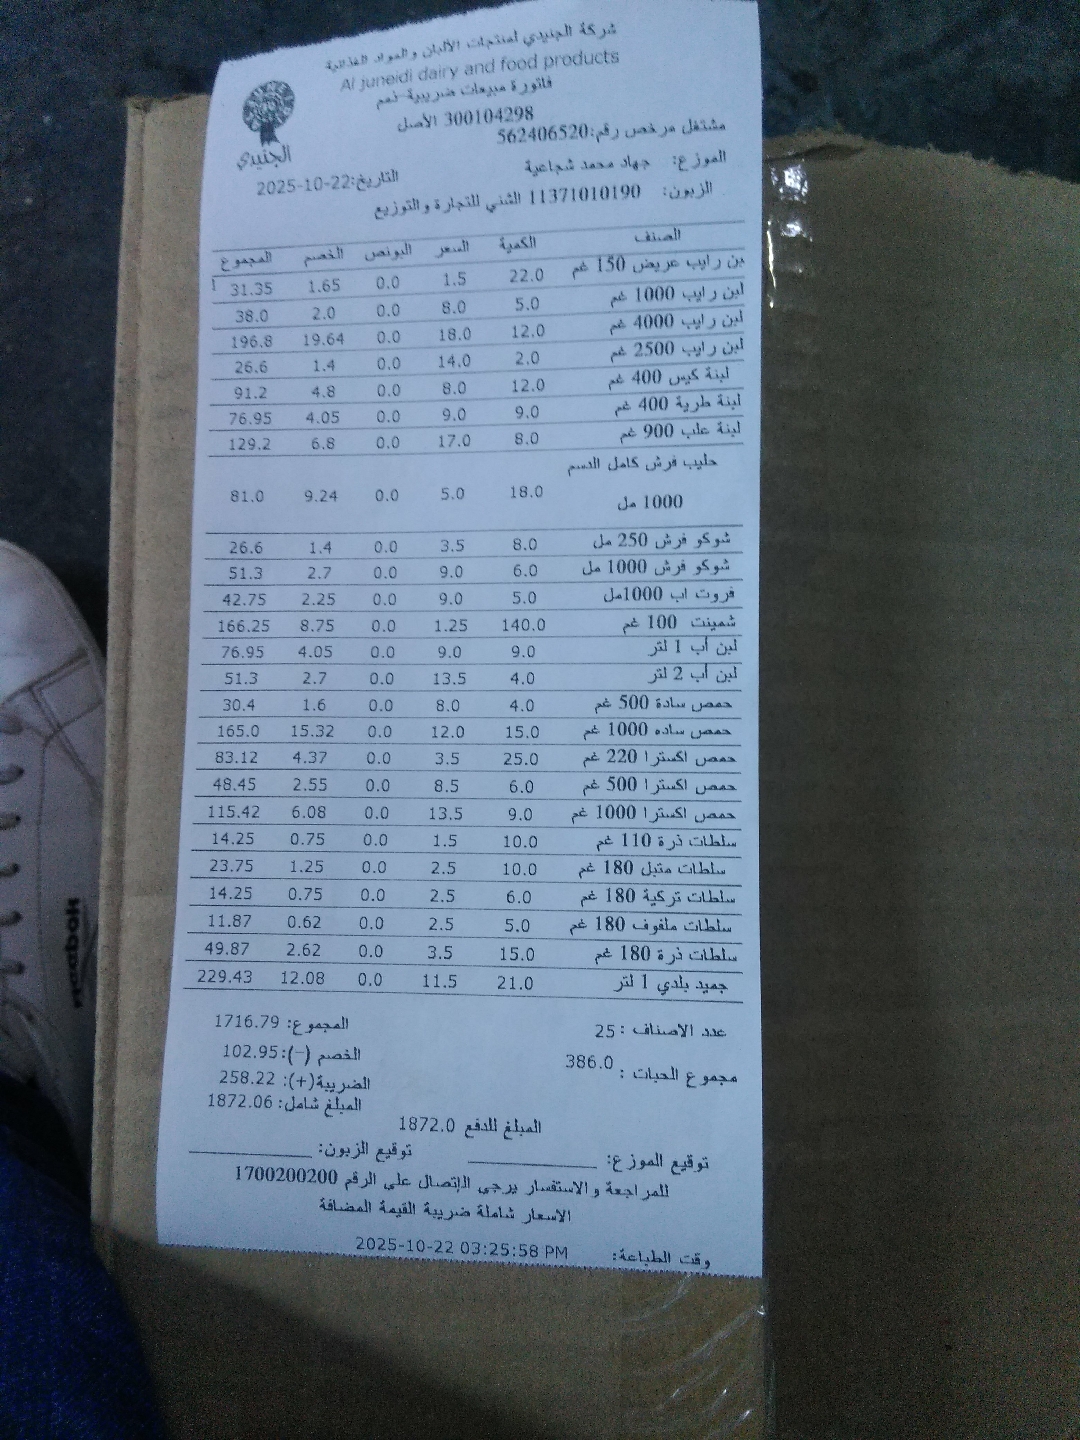 شركة الجنيدي لمنتجات الألبان والمواد الغذائية
Al juneidi dairy and food products
فاتورة مبيعات ضريبية-ذمم
300104298 الأصل
مشتغل مرخص رقم:562406520
الجنيدي
الموزع: جهاد محمد شجاعية
التاريخ:2025-10-22
الزبون: 11371010190 الشني للتجارة والتوزيع
الصنف الكمية السعر البونص الخصم المجموع
بن رايب عريض 150 غم 22.0 1.5 0.0 1.65 31.35
لبن رايب 1000 غم 5.0 8.0 0.0 2.0 38.0
لبن رايب 4000 غم 12.0 18.0 0.0 19.64 196.8
لبن رايب 2500 غم 2.0 14.0 0.0 1.4 26.6
لبنة كيس 400 غم 12.0 8.0 0.0 4.8 91.2
لبنة طرية 400 غم 9.0 9.0 0.0 4.05 76.95
لبنة علب 900 غم 8.0 17.0 0.0 6.8 129.2
حليب فرش كامل الدسم
1000 مل 18.0 5.0 0.0 9.24 81.0
شوكو فرش 250 مل 8.0 3.5 0.0 1.4 26.6
شوكو فرش 1000 مل 6.0 9.0 0.0 2.7 51.3
فروت اب 1000مل 5.0 9.0 0.0 2.25 42.75
شمينت 100 غم 140.0 1.25 0.0 8.75 166.25
لبن أب 1 لتر 9.0 9.0 0.0 4.05 76.95
لبن أب 2 لتر 4.0 13.5 0.0 2.7 51.3
حمص سادة 500 غم 4.0 8.0 0.0 1.6 30.4
حمص ساده 1000 غم 15.0 12.0 0.0 15.32 165.0
حمص اكسترا 220 غم 25.0 3.5 0.0 4.37 83.12
حمص اكسترا 500 غم 6.0 8.5 0.0 2.55 48.45
حمص اكسترا 1000 غم 9.0 13.5 0.0 6.08 115.42
سلطات ذرة 110 غم 10.0 1.5 0.0 0.75 14.25
سلطات متبل 180 غم 10.0 2.5 0.0 1.25 23.75
سلطات تركية 180 غم 6.0 2.5 0.0 0.75 14.25
سلطات ملفوف 180 غم 5.0 2.5 0.0 0.62 11.87
سلطات ذرة 180 غم 15.0 3.5 0.0 2.62 49.87
جميد بلدي 1 لتر 21.0 11.5 0.0 12.08 229.43
عدد الاصناف : 25
المجموع: 1716.79
مجموع الحبات : 386.0
الخصم (-):102.95
الضريبة(+): 258.22
المبلغ شامل: 1872.06
المبلغ للدفع 1872.0
توقيع الموزع: توقيع الزبون:
للمراجعة والاستفسار يرجى الإتصال على الرقم 1700200200
الاسعار شاملة ضريبة القيمة المضافة
وقت الطباعة: 2025-10-22 03:25:58 PM
Reebok